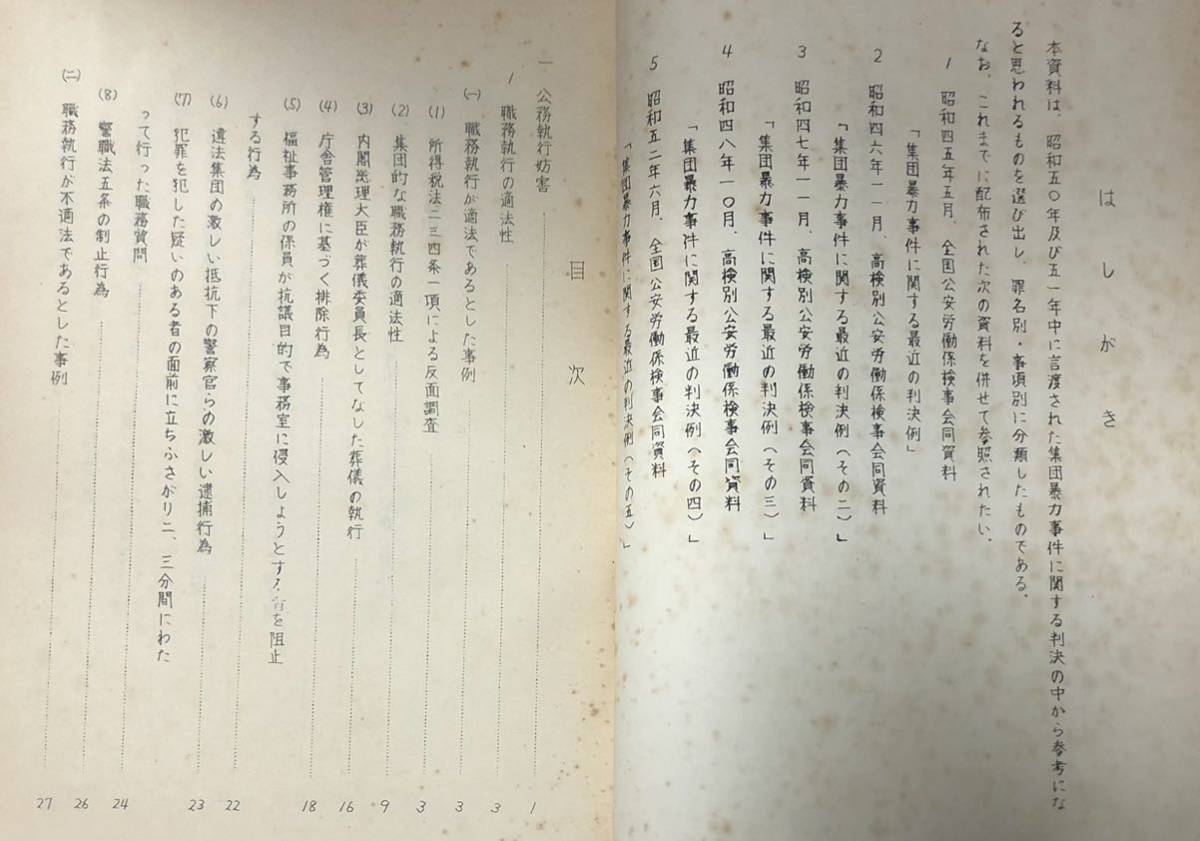 はしがき
本資料は、昭和五〇年及び五一年中に言渡された集団暴力事件に関する判決の中から参考にな
ると思われるものを選び出し、罪名別・事項別に分類したものである。
なお、これまでに配布された次の資料を併せて参照されたい。
1 昭和四五年五月、全国公安労働係検事会同資料
「集団暴力事件に関する最近の判決例」
2 昭和四六年一一月、高検別公安労働係検事会同資料
「集団暴力事件に関する最近の判決例(その二)」
3 昭和四七年一一月、高検別公安労働係検事会同資料
「集団暴力事件に関する最近の判決例(その三)」
4 昭和四八年一〇月、高検別公安労働係検事会同資料
「集団暴力事件に関する最近の判決例(その四)」
5 昭和五二年六月、全国公安労働係検事会同資料
「集団暴力事件に関する最近の判決例(その五)」
目次
一 公務執行妨害 1
1 職務執行の適法性 3
㈠ 職務執行が適法であるとした事例 3
(1) 所得税法二三四条一項による反面調査 3
(2) 集団的な職務執行の適法性 9
(3) 内閣総理大臣が葬儀委員長としてなした葬儀の執行 16
(4) 庁舎管理権に基づく排除行為 18
(5) 福祉事務所の係員が抗議目的で事務室に侵入しようとする者を阻止
する行為 22
(6) 違法集団の激しい抵抗下の警察官らの激しい逮捕行為 23
(7) 犯罪を犯した疑いのある者の面前に立ちふさがり二、三分間にわた
って行った職務質問 24
(8) 警職法五条の制止行為 26
㈡ 職務執行が不適法であるとした事例 27